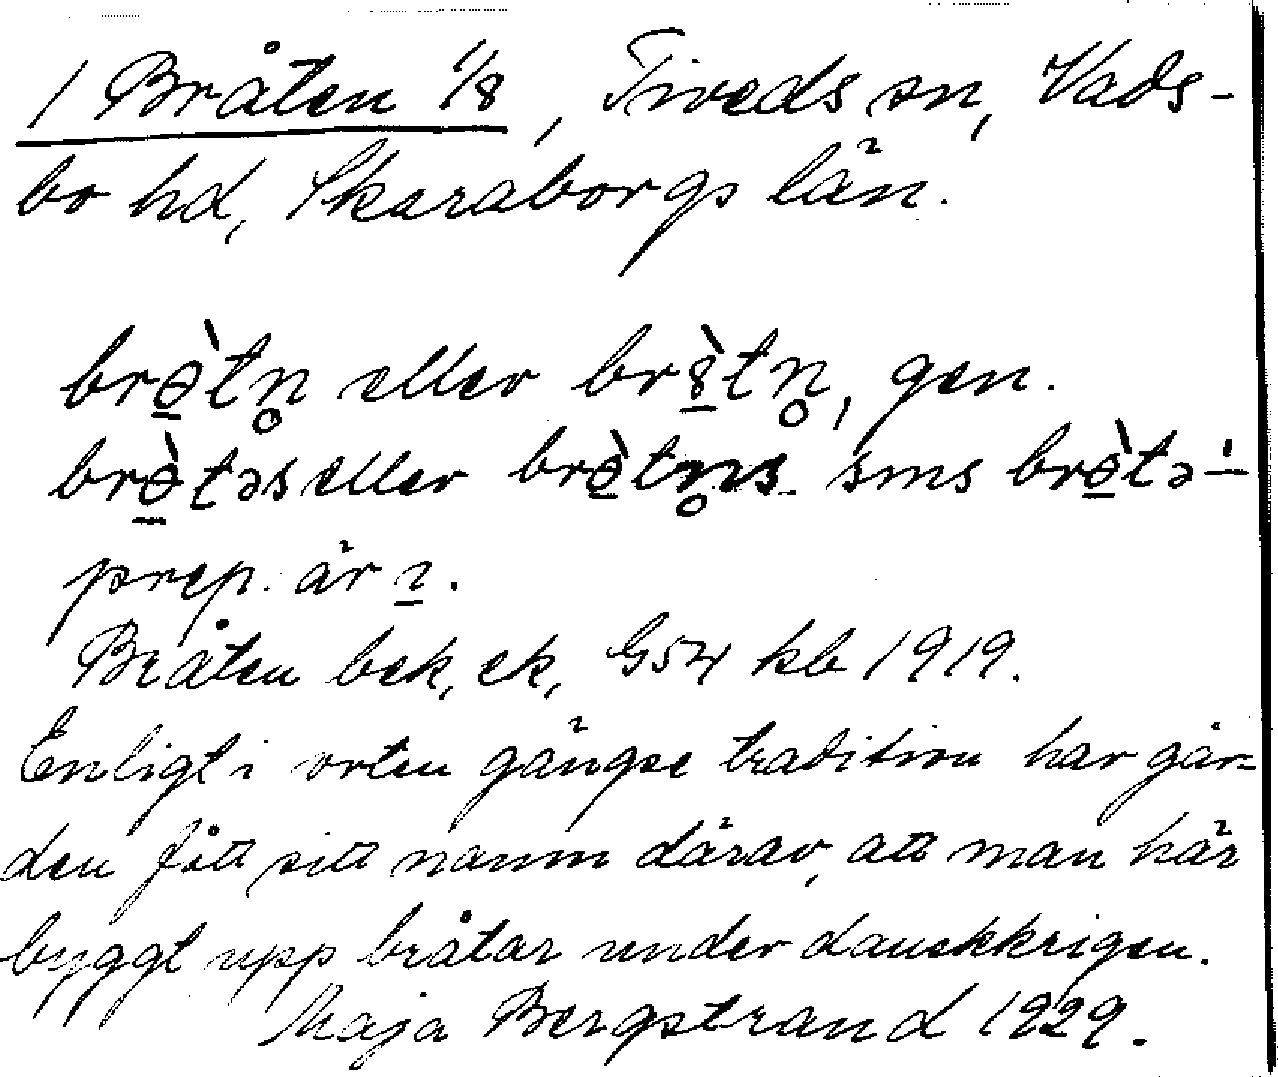 1 Bråten 1/8, Tiveds sn, Vads-
bo hd, Skaraborgs län.
brɵ̀tn̥ eller br8̀tn̥, gen.
brɵ̀təs eller brɵ̀tn̥s sms brɵ̀tə-
prep. är ı.
Bråten bek, ek, G54 kb 1919.
Enligt i orten gängse tradition har går=
den fått sitt namn därav, att man här
byggt upp bråtar under danskkrigen.
Maja Bergstrand 1929.